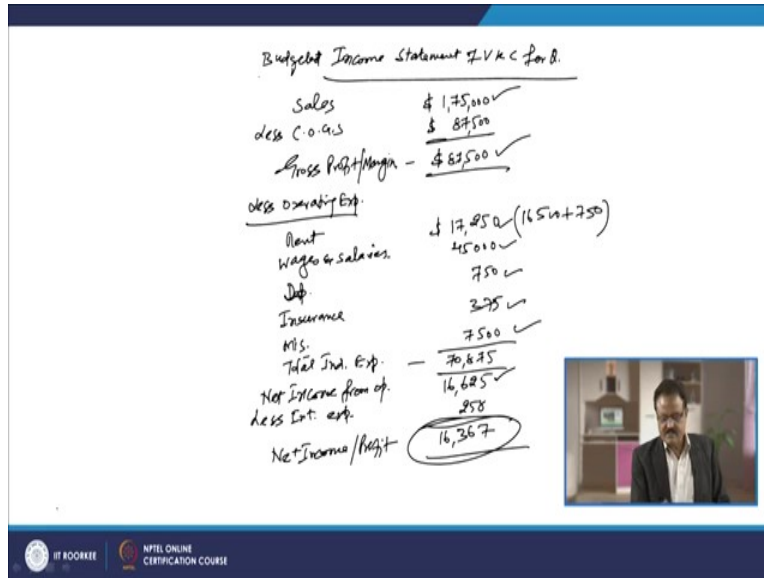 Budgeted Income Statement of V K C for Q.
Sales $ 1,75,000
Less C.O.G.S $ 87,500
Gross Profit/Margin - $ 87,500
Less Operating Exp.
Rent $ 17,250 (16500+750)
Wages & Salaries. 45000
Dep. 750
Insurance 375
Mis. 7500
Total Ind. Exp. - 70,875
Net Income from op. 16,625
Less Int. exp. 258
Net Income/Profit 16,367
IT ROORKEE
NPTEL ONLINE
CERTIFICATION COURSE